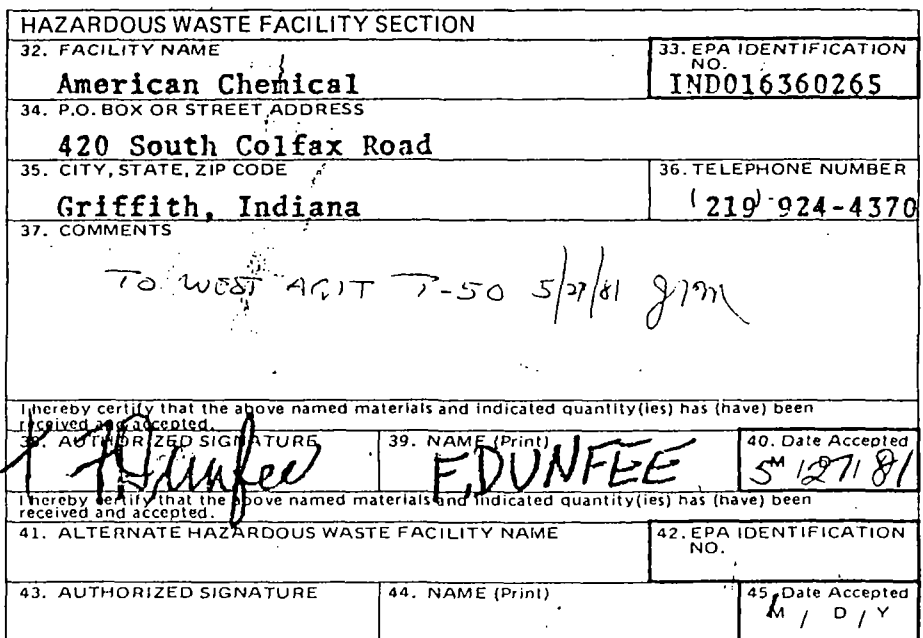 HAZARDOUS WASTE FACILITY SECTION
32. FACILITY NAME
American Chemical
33. EPA IDENTIFICATION NO.
IND016360265
34. P.O. BOX OR STREET ADDRESS
420 South Colfax Road
35. CITY, STATE, ZIP CODE
Griffith, Indiana
36. TELEPHONE NUMBER
(219) 924-4370
37. COMMENTS
TO WEST AGIT T-50 5/27/81
I hereby certify that the above named materials and indicated quantity(ies) has (have) been
received and accepted.
38. AUTHORIZED SIGNATURE
Dunfee
39. NAME (Print)
F. DUNFEE
40. Date Accepted
5 M / 27 / 81
I hereby certify that the above named materials and indicated quantity(ies) has (have) been
received and accepted.
41. ALTERNATE HAZARDOUS WASTE FACILITY NAME
42. EPA IDENTIFICATION NO.
43. AUTHORIZED SIGNATURE
44. NAME (Print)
45. Date Accepted
M / D / Y